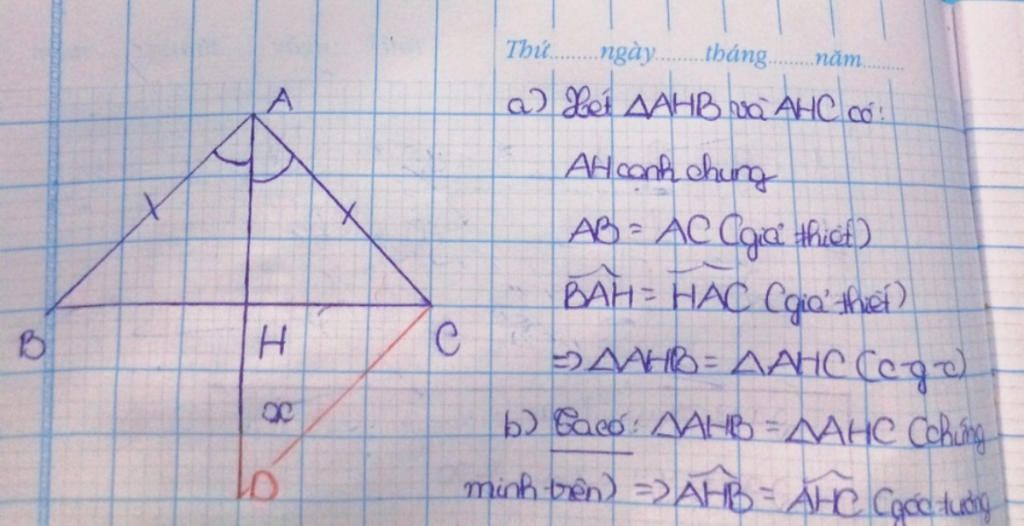 Thứ.........ngày.........tháng.........năm.........
A
a) Xét ΔAHB và AHC có:
AH cạnh chung
AB = AC (giả thiết)
BAH = HAC (giả thiết)
B
H
C
=> ΔAHB = ΔAHC (c-g-c)
x
b) Ta có: ΔAHB = ΔAHC (chứng
D
minh trên) => AHB = AHC (góc tương